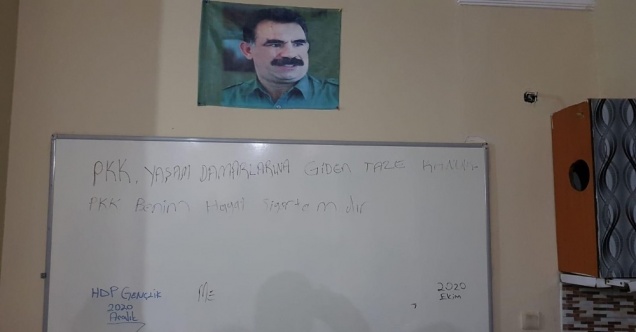 PKK. YAŞAM DAMARLARINA GİDEN TAZE KANDIR
PKK Benim Hayat Sigortamdır
HDP GENÇLİK
2020
Aralık
ME
2020
Ekim